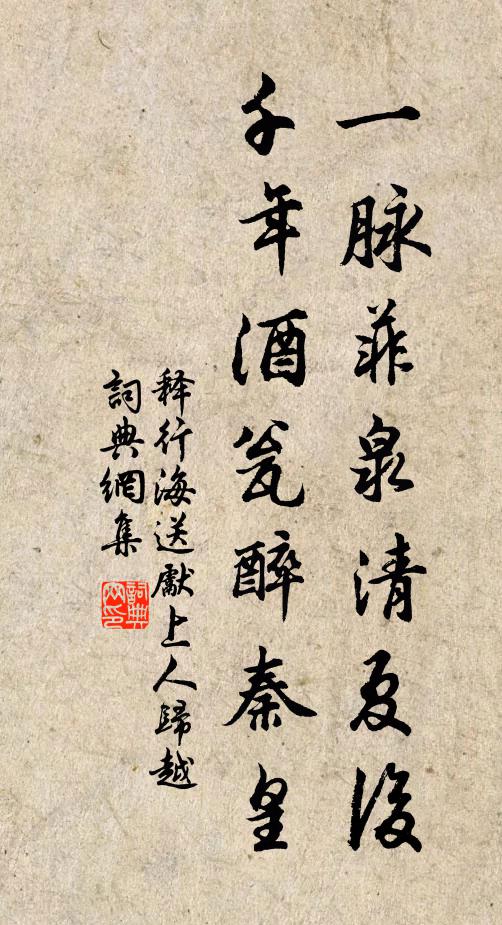 一脉菲泉清夏后
千年酒瓮醉秦皇
释行海送獻上人歸越
詞典網集
詞典網印